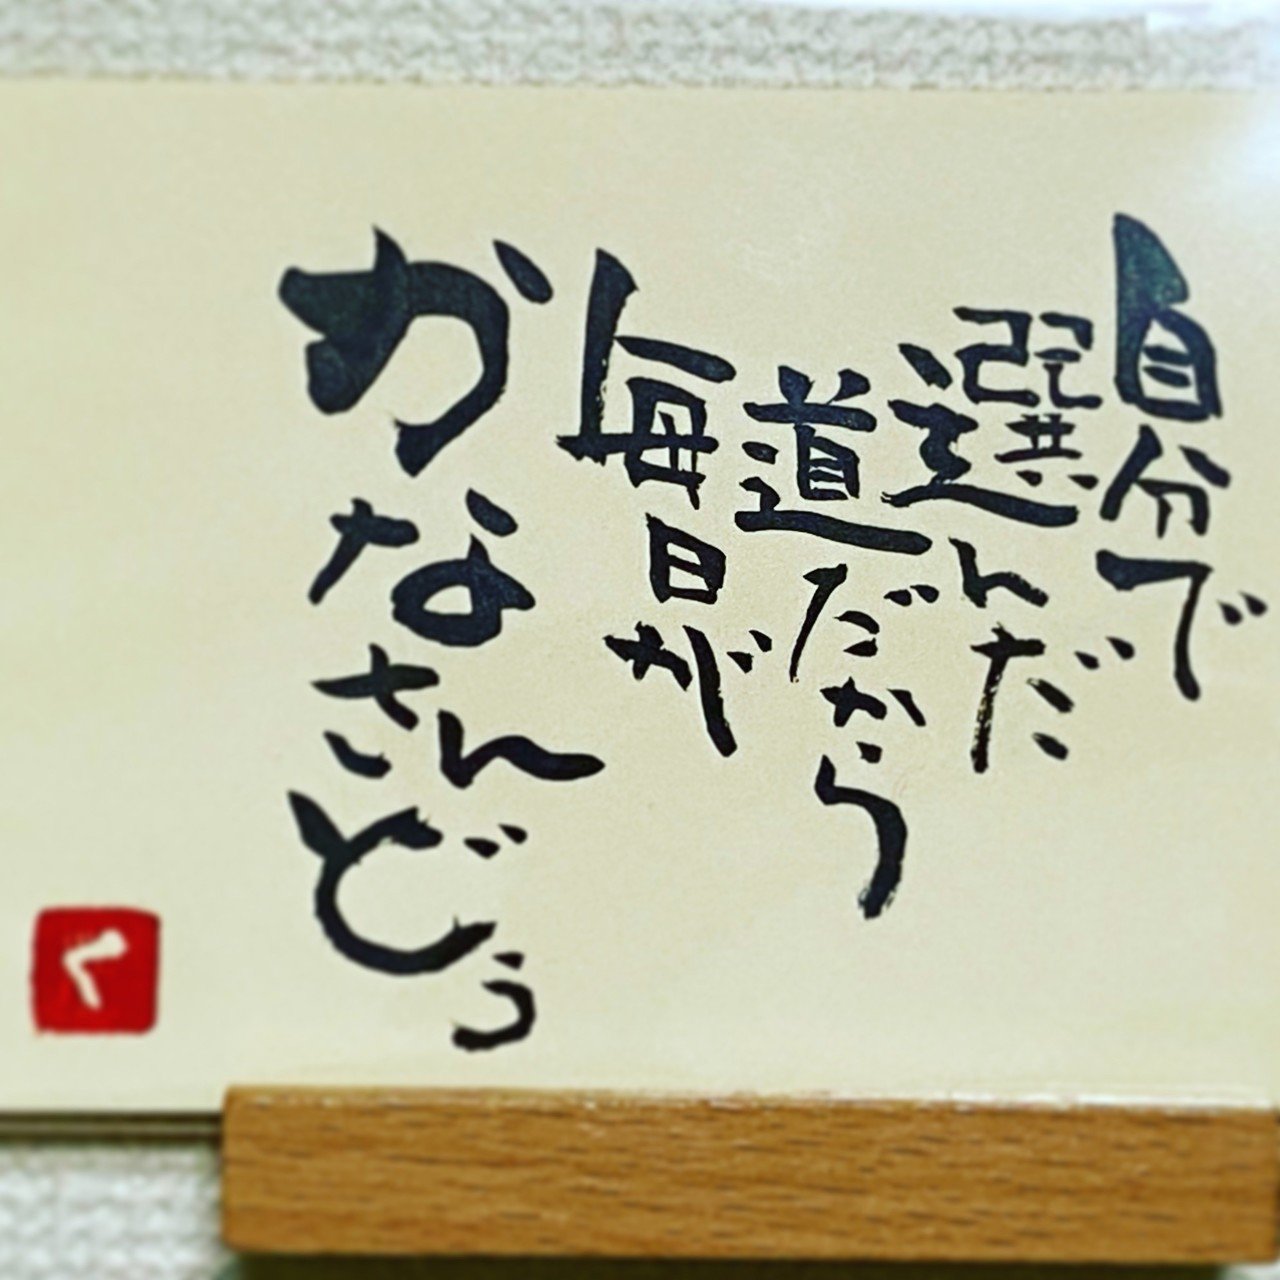 自分で
選んだ
道だから
毎日が
かなさんどぅ
く